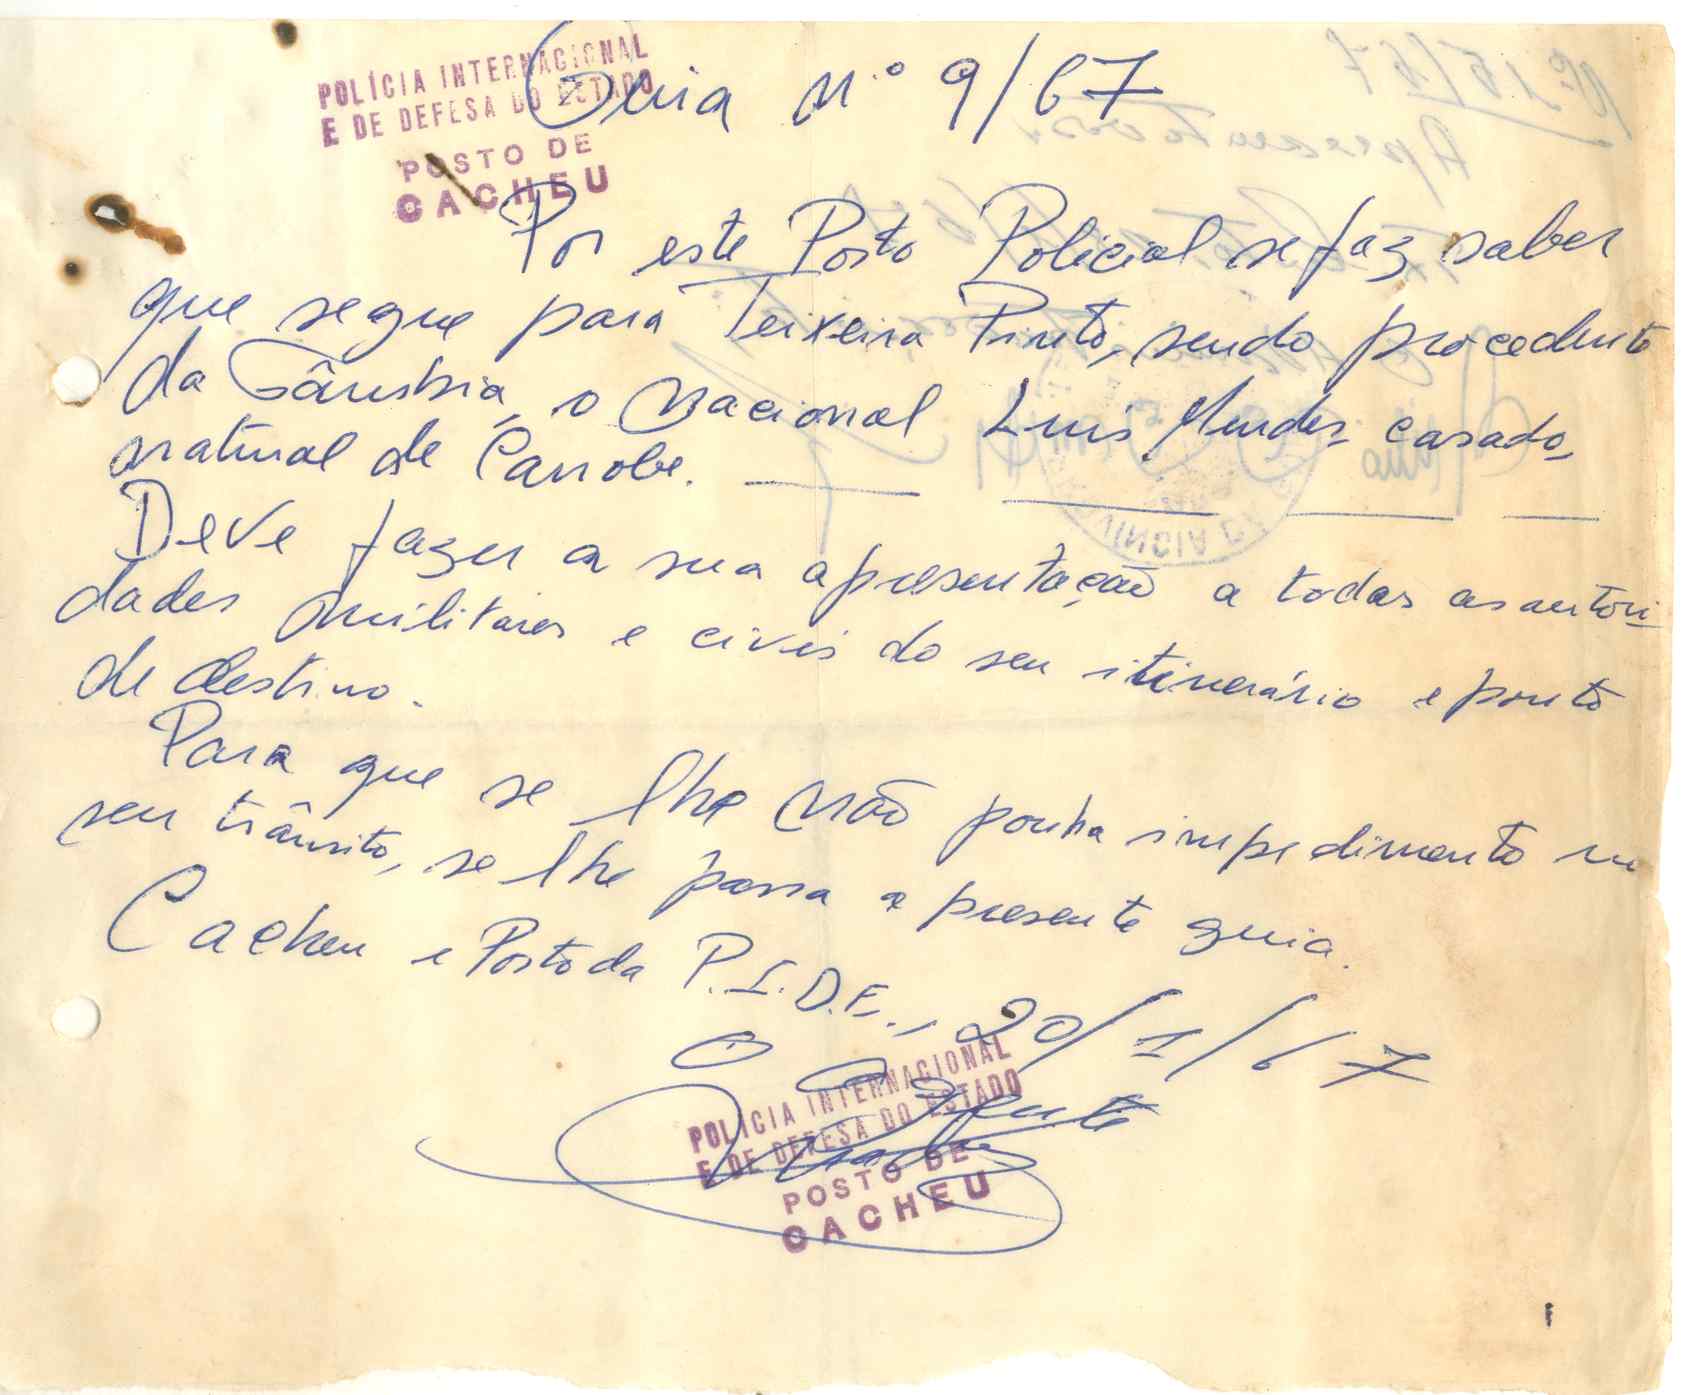 POLÍCIA INTERNACIONAL
E DE DEFESA DO ESTADO
POSTO DE
CACHEU
Guia n.º 9/67
Por este Posto Policial se faz saber
que segue para Teixeira Pinto, sendo procedente
da Gâmbia, o nacional Luis Mendes casado,
natural de Carrobe.
Deve fazer a sua apresentação a todas as autori-
dades militares e civis do seu itinerário e ponto
de destino.
Para que se lhe não ponha impedimento no
seu trânsito, se lhe passa a presente guia.
Cacheu e Posto da P.I.D.E., 20/1/67
O Agente
POLICIA INTERNACIONAL
E DE DEFESA DO ESTADO
POSTO DE
CACHEU